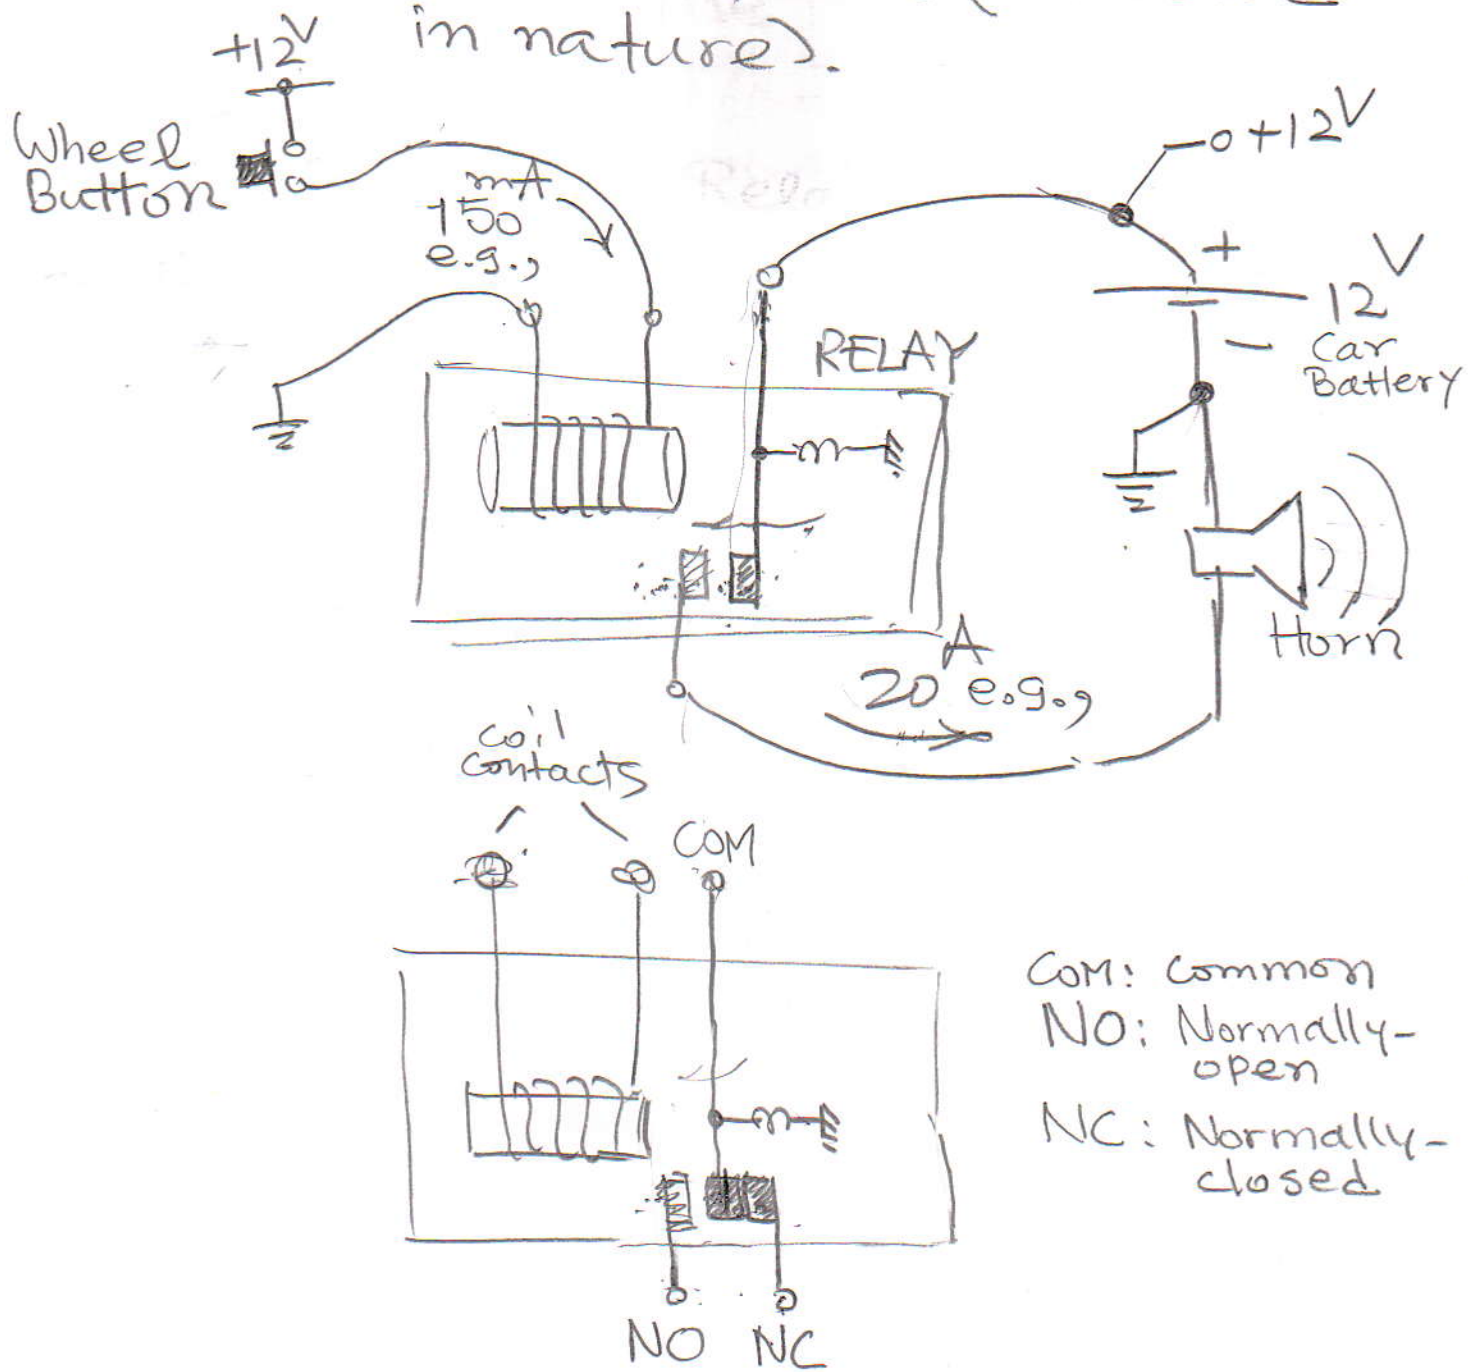 in nature).
+12V
Wheel
Button
mA
150
e.g.,
+12V
+
12V
-
Car
Battery
RELAY
Horn
A
20 e.g.,
coil
contacts
COM
COM: Common
NO: Normally-
open
NC: Normally-
closed
NO NC